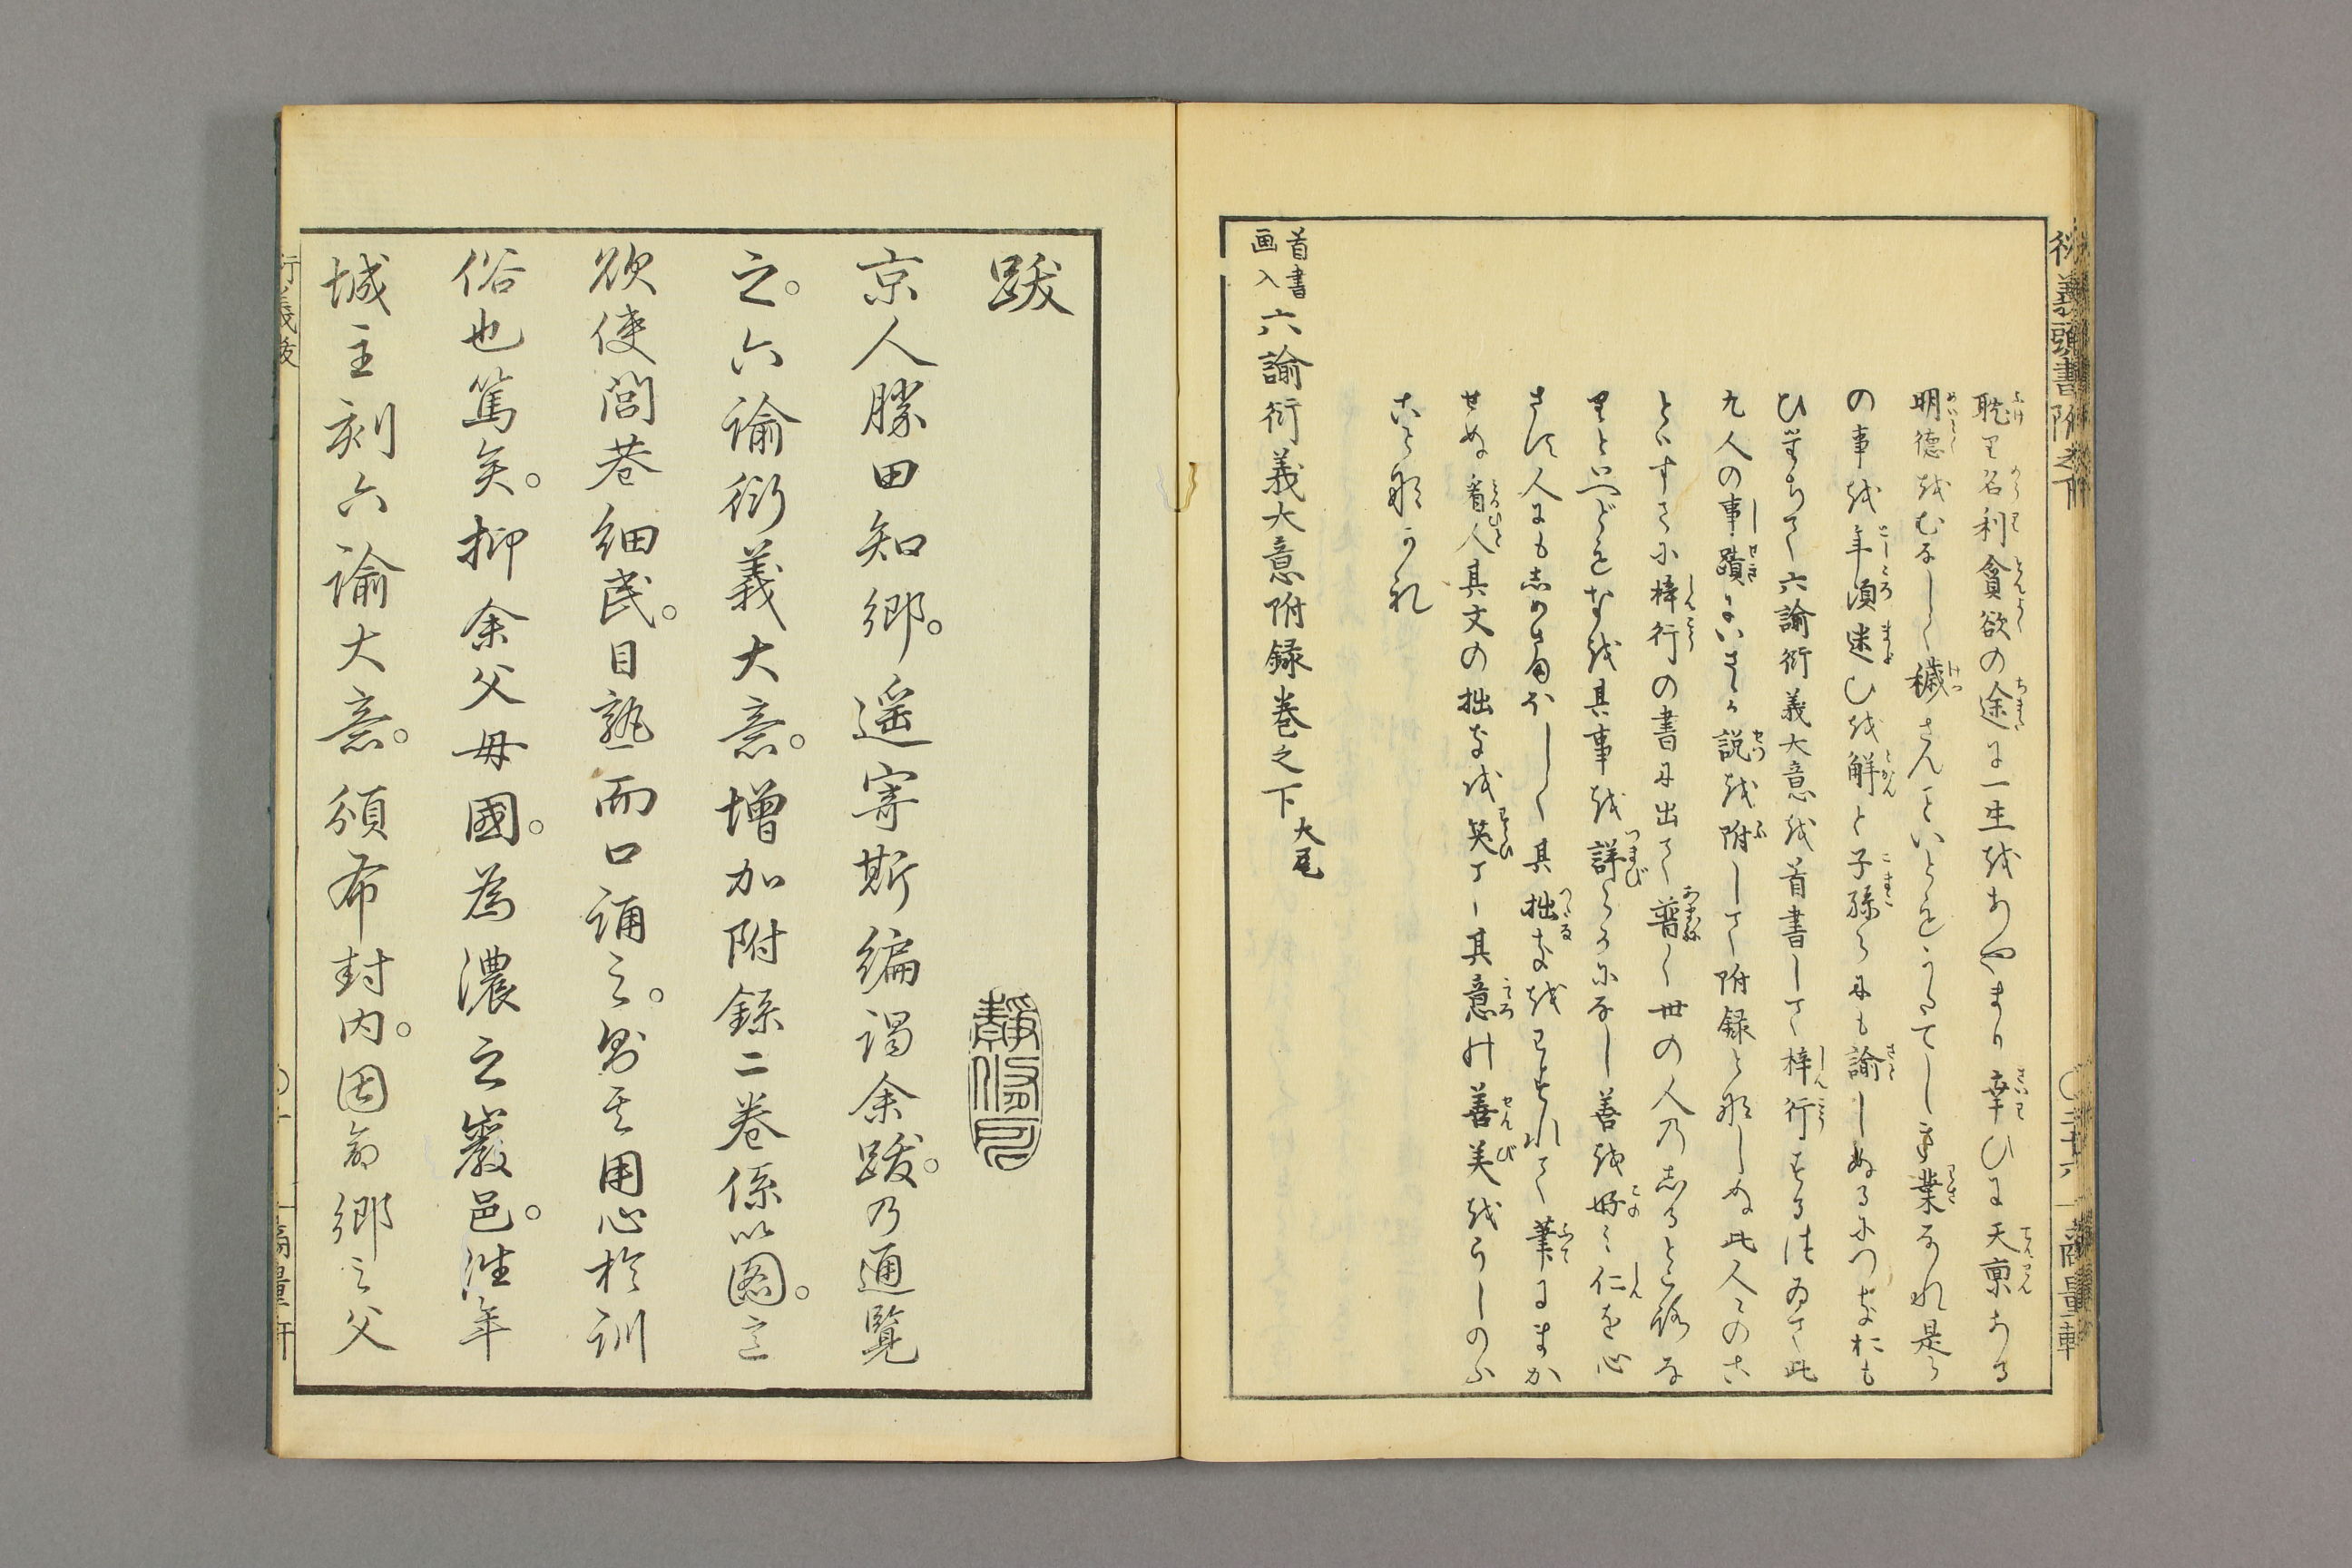 衍義頭書附巻下
耽り名利貪欲の途に一生をあやまり幸ひに天禀ある
明徳をむなしく穢さんこといとをうたてしき業なれ是ら
の事を年頃迷ひを解と子孫らにも諭しぬるにつきおも
ひ出ちて六諭衍義大意を首書して梓行する
九人の事蹟にいさゝか説を附して附録と那しぬ此人々のこ
とハすてに梓行の書に出て普く世の人乃志るところな
りといへどもなを其事を詳らかにし善を好ミ仁を心
さす人にも志めさまほしく其拙きをわすれて筆にまか
せぬ看人其文の拙きを笑て其意の善美をうしのふ
こと那かれ
首書
画入
六諭衍義大意附録巻之下大尾
商量軒
跋
京人勝田知郷。遥寄斯編謁余跋。乃通覧
之。六諭衍義大意。増加附録二巻係以図。
欲使閭巷細民。目熟而口誦之。其用心於訓
俗也篤矣。抑余父母國。為濃之巖邑。往年
城主刻六諭大意。頒布封内。因命郷之父